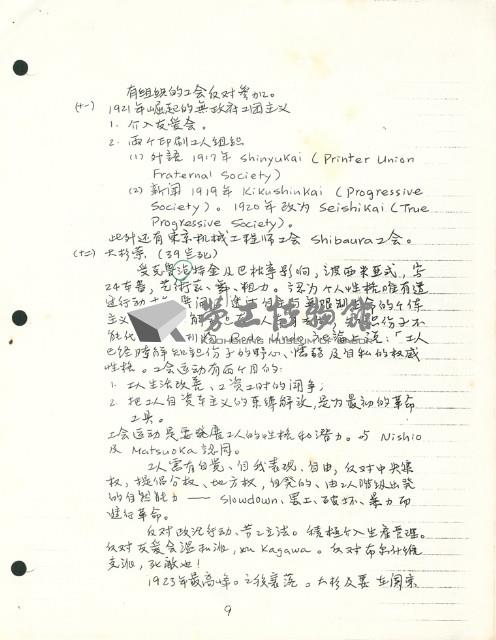 有组织的工会反对参加。
(十一) 1921年崛起的無政府工团主义
1. 介入友愛会。
2. 两个印刷工人组织
(1) 外語 1917年 Shinyukai (Printer Union
Fraternal Society)
(2) 新闻 1919年 Kikushinkai (Progressive
Society)。1920年改为 Seishikai (True
Progressive Society)。
此外还有東京机械工程师工会 Shibaura工会。
(十二) 大杉荣 (39岁死)
受克魯泡特金及巴枯寧影响,
24本書,
主义
能代
劳工博物館
KAOHSIUNG MUSEUM OF LABOR
Gen Undo 説:「工人
已経瞭解知识份子的野心、懦弱及自私的权威
性格。工会运动有两个目的:
1. 工人生活改善、工资工时的闘争,
2. 把工人自资本主义的束缚解放,是为最初的革命
工具。
工会运动是要発展工人的性格和潜力。与 Nishio
及 Matsuoka 認同。
工人需有自覚、自我表現、自由,反对中央集
权,提倡分权、地方权,自発的、由工人階级出発
的自然能力 —— Slowdown、罢工、破坏、暴力而
進行革命。
反对政治行动、劳工立法。積極介入生産管理。
反对友爱会温和派,如 Kagawa。反对布尔什维
克派,死敵也!
1923年最高峰。之後衰落。大杉及妻在関東
9